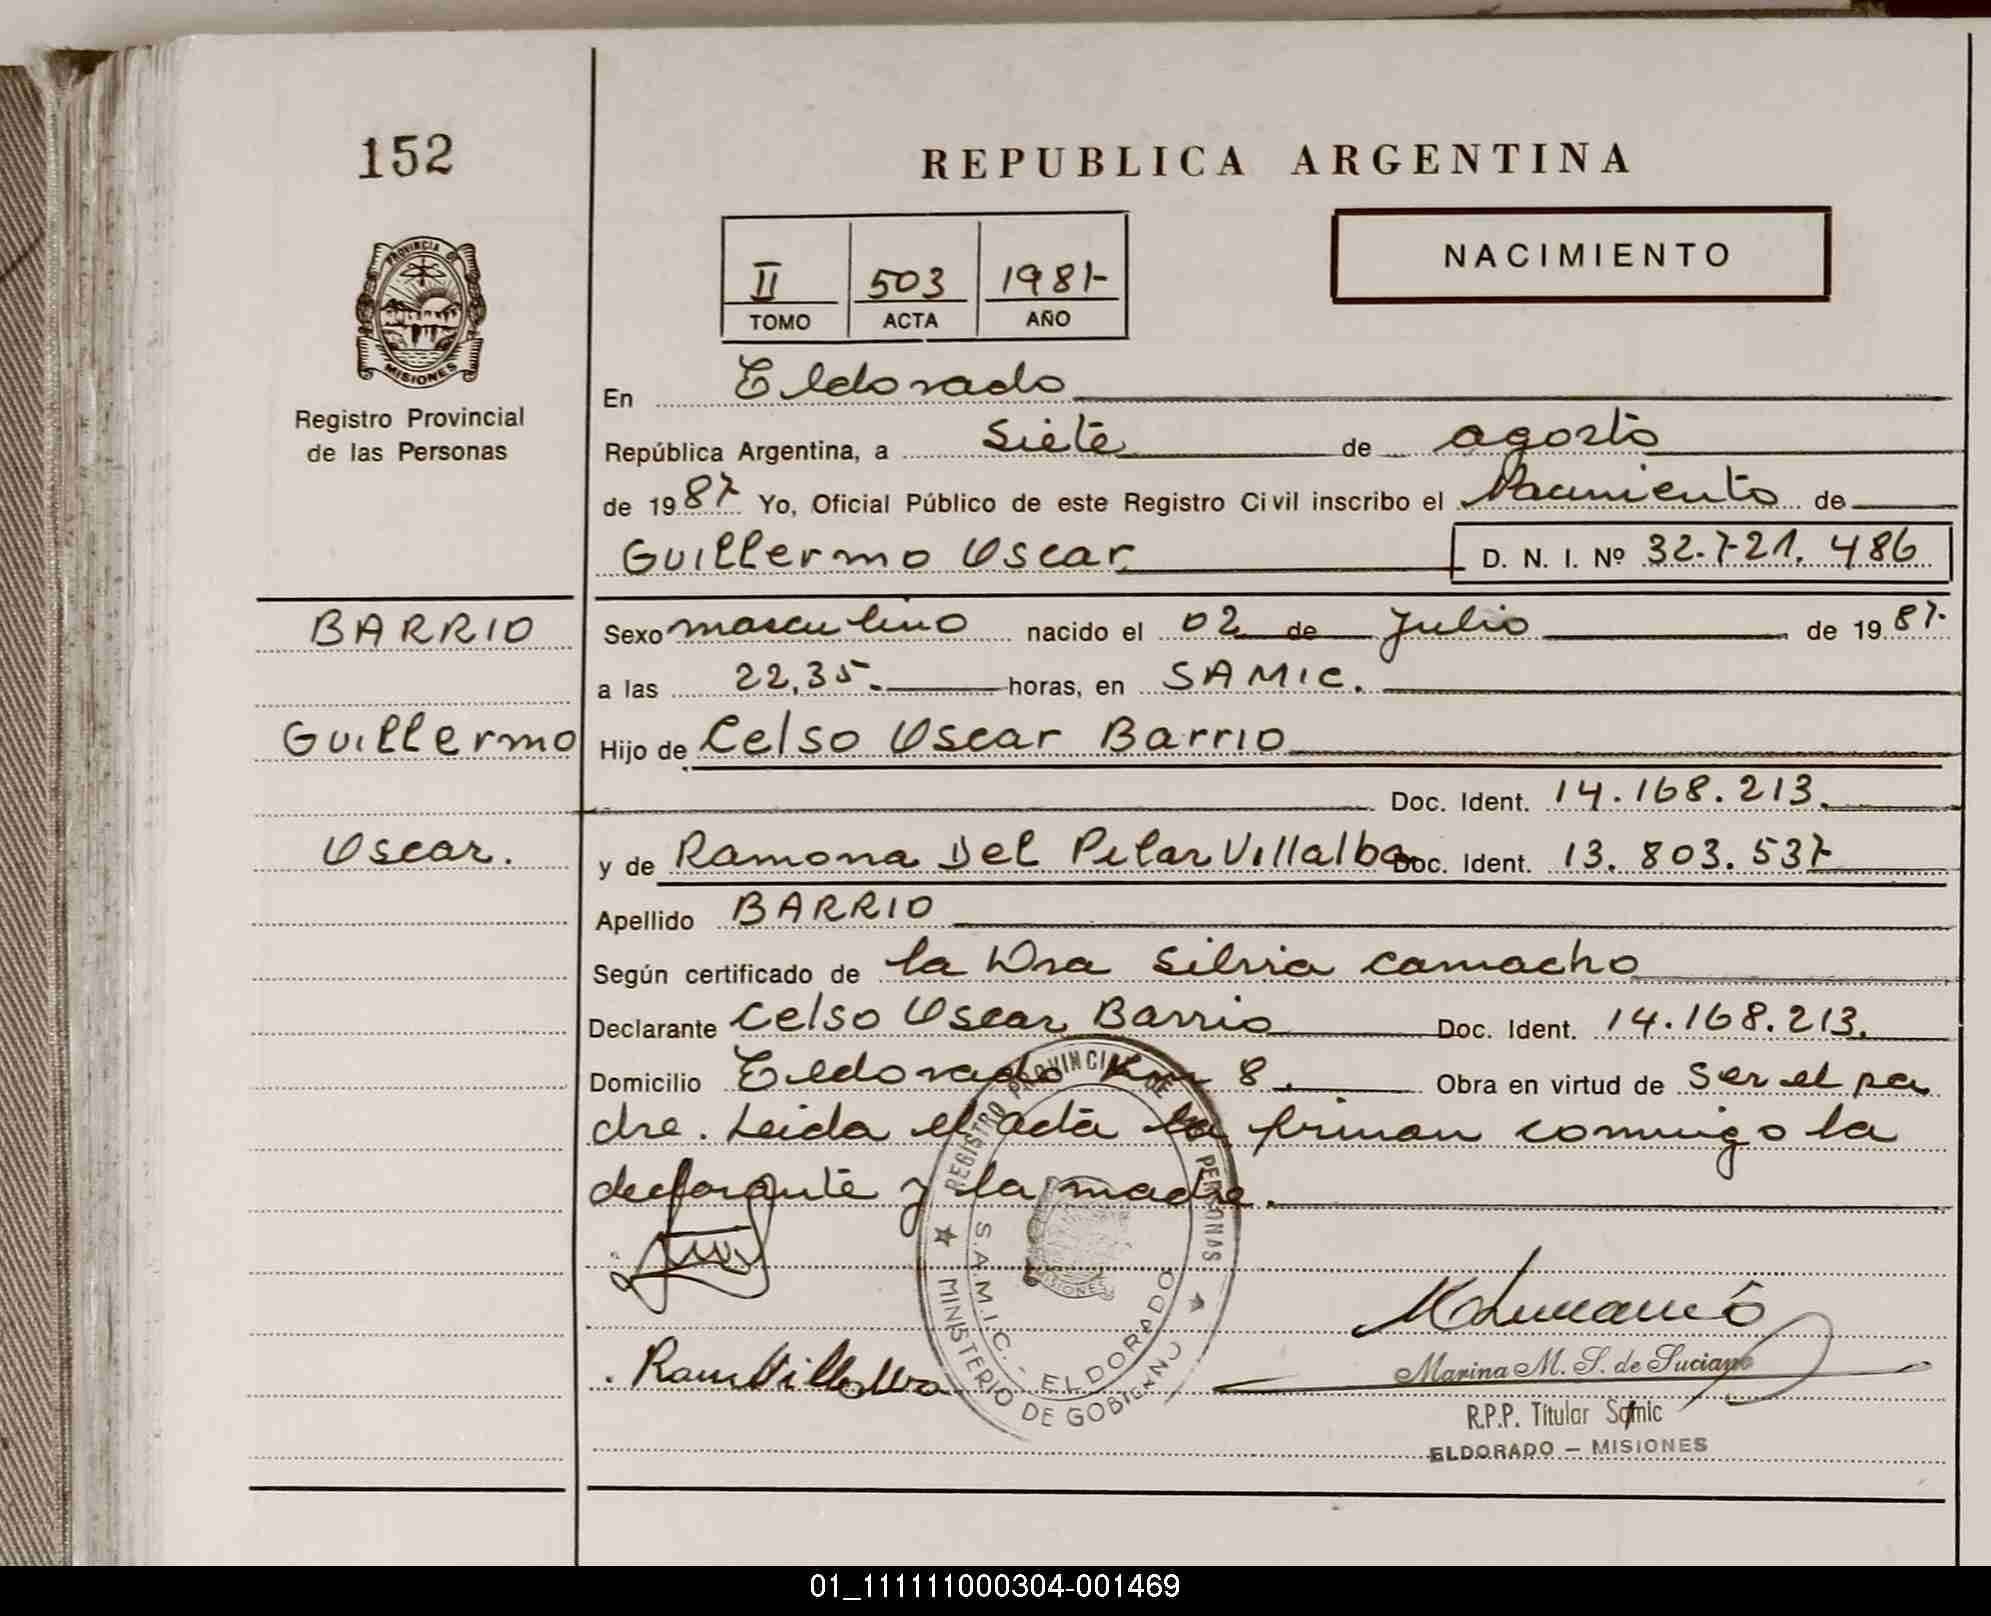 152
REPUBLICA ARGENTINA
NACIMIENTO
II 503 1981-
TOMO ACTA AÑO
PROVINCIA DE
MISIONES
Registro Provincial
de las Personas
En Eldorado
República Argentina, a Siete de agosto
de 1987 Yo, Oficial Público de este Registro Civil inscribo el Nacimiento de
Guillermo Oscar D. N. I. Nº 32.721.486
BARRIO
Guillermo
Oscar.
Sexo masculino nacido el 02 de Julio de 1987-
a las 22,35. horas, en SAMIC.
Hijo de Celso Oscar Barrio
Doc. Ident. 14.168.213.
y de Ramona Del Pilar Villalba Doc. Ident. 13.803.537
Apellido BARRIO
Según certificado de la Dra Silvia Camacho
Declarante Celso Oscar Barrio Doc. Ident. 14.168.213.
Domicilio Eldorado Km 8. Obra en virtud de Ser el pa
dre. Leida el acta la firman conmigo la
declarante y la madre.
REGISTRO PROVINCIAL DE LAS PERSONAS
S.A.M.I.C. - ELDORADO
MINISTERIO DE GOBIERNO
MISIONES
Marina M. S. de Luciano
R.P.P. Titular Samic
ELDORADO – MISIONES
01_111111000304-001469